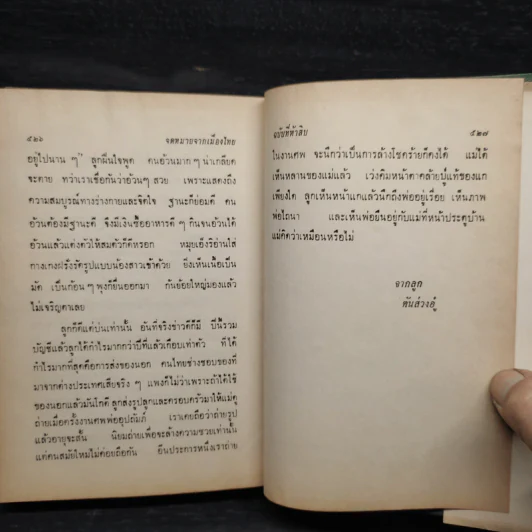 ๕๒๖ จดหมายจากเมืองไทย
อยู่ไปนาน ๆ” ลูกฝืนใจพูด คนอ้วนมาก ๆ น่าเกลียด
จะตาย ทว่าเราเชื่อกันว่าอ้วนๆ สวย เพราะแสดงถึง
ความสมบูรณ์ทางร่างกายและจิตใจ ฐานะก็ยอมดี คน
อ้วนต้องมีฐานะดี จึงมีเงินซื้ออาหารดี ๆ กินจนอ้วนได้
อ้วนแล้วแต่งตัวให้สมตัวก็ดีหรอก หมุยเอ็งริอ่านใส่
กางเกงฝรั่งรัดรูปแบบน้องสาวเข้าด้วย ยิ่งเห็นเนื้อเป็น
มัด เป็นก้อน ๆ พุงก็ยื่นออกมา ก้นย้อยใหญ่มองแล้ว
ไม่เจริญตาเลย
ลูกก็ดีแต่บ่นเท่านั้น อันที่จริงข่าวดีก็มี ปีนี้รวม
บัญชีแล้วลูกได้กำไรมากกว่าปีที่แล้วเกือบเท่าตัว ที่ได้
กำไรมากที่สุดคือการส่งของนอก คนไทยช่างชอบของที่
มาจากต่างประเทศเสียจริง ๆ แพงก็ไม่ว่าเพราะถ้าได้ใช้
ของนอกแล้วมันโก้ดี ลูกส่งรูปลูกและครอบครัวมาให้แม่ดู
ถ่ายเมื่อครั้งงานศพพ่ออุปถัมภ์ เราเคยถือว่าถ่ายรูป
แล้วอายุจะสั้น นิยมถ่ายเพื่อจะล้างความซวยเท่านั้น
แต่คนสมัยใหม่ไม่ค่อยถือกัน อีกประการหนึ่งเราถ่าย
ฉบับที่ห้าสิบ ๕๒๗
ในงานศพ จะนึกว่าเป็นการล้างโชคร้ายก็คงได้ แม่ได้
เห็นหลานของแม่แล้ว เว่งคิมหน้าตาคล้ายปู่แท้ของแก
เพียงใด ลูกเห็นหน้าแกแล้วนึกถึงพ่ออยู่เรื่อย เห็นภาพ
พ่อไถนา และเห็นพ่อยืนอยู่กับแม่ที่หน้าประตูบ้าน
แม่คิดว่าเหมือนหรือไม่
จากลูก
ตันส่วงอู๋